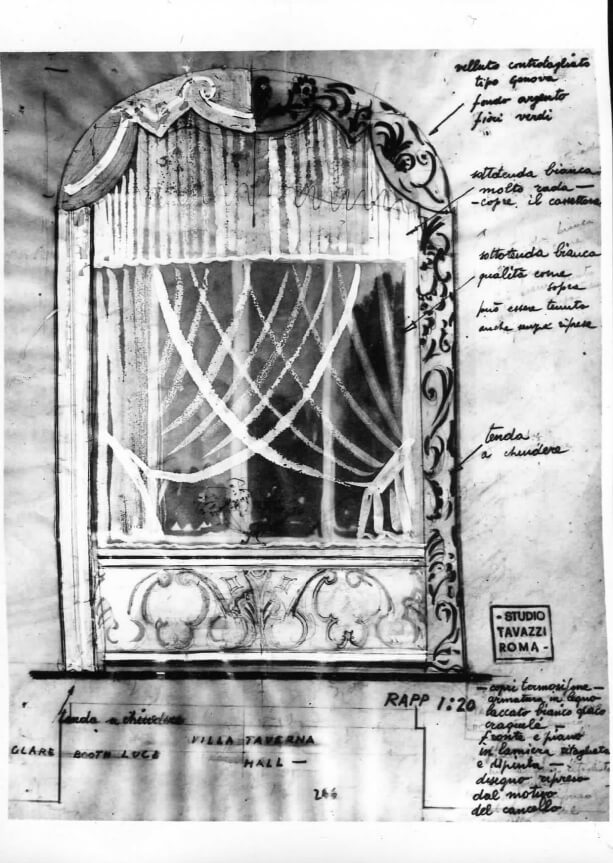 velluto controtagliato
tipo Genova
fondo argento
fiori verdi
sottotenda bianca
molto rada —
- copre il cassettone
sottotenda bianca
qualità come
sopra
può essere tenuta
anche senza riprese
tenda
a chiudere
- STUDIO
TAVAZZI
ROMA -
RAPP 1:20
— copri termosifone —
armatura in legno
laccato bianco opaco
craquelé —
fronte e piano
in lamiera ritagliata
e dipinta —
disegno ripreso
dal motivo
del cancello
tenda a chiudere
CLARE BOOTH LUCE
VILLA TAVERNA
HALL —
246